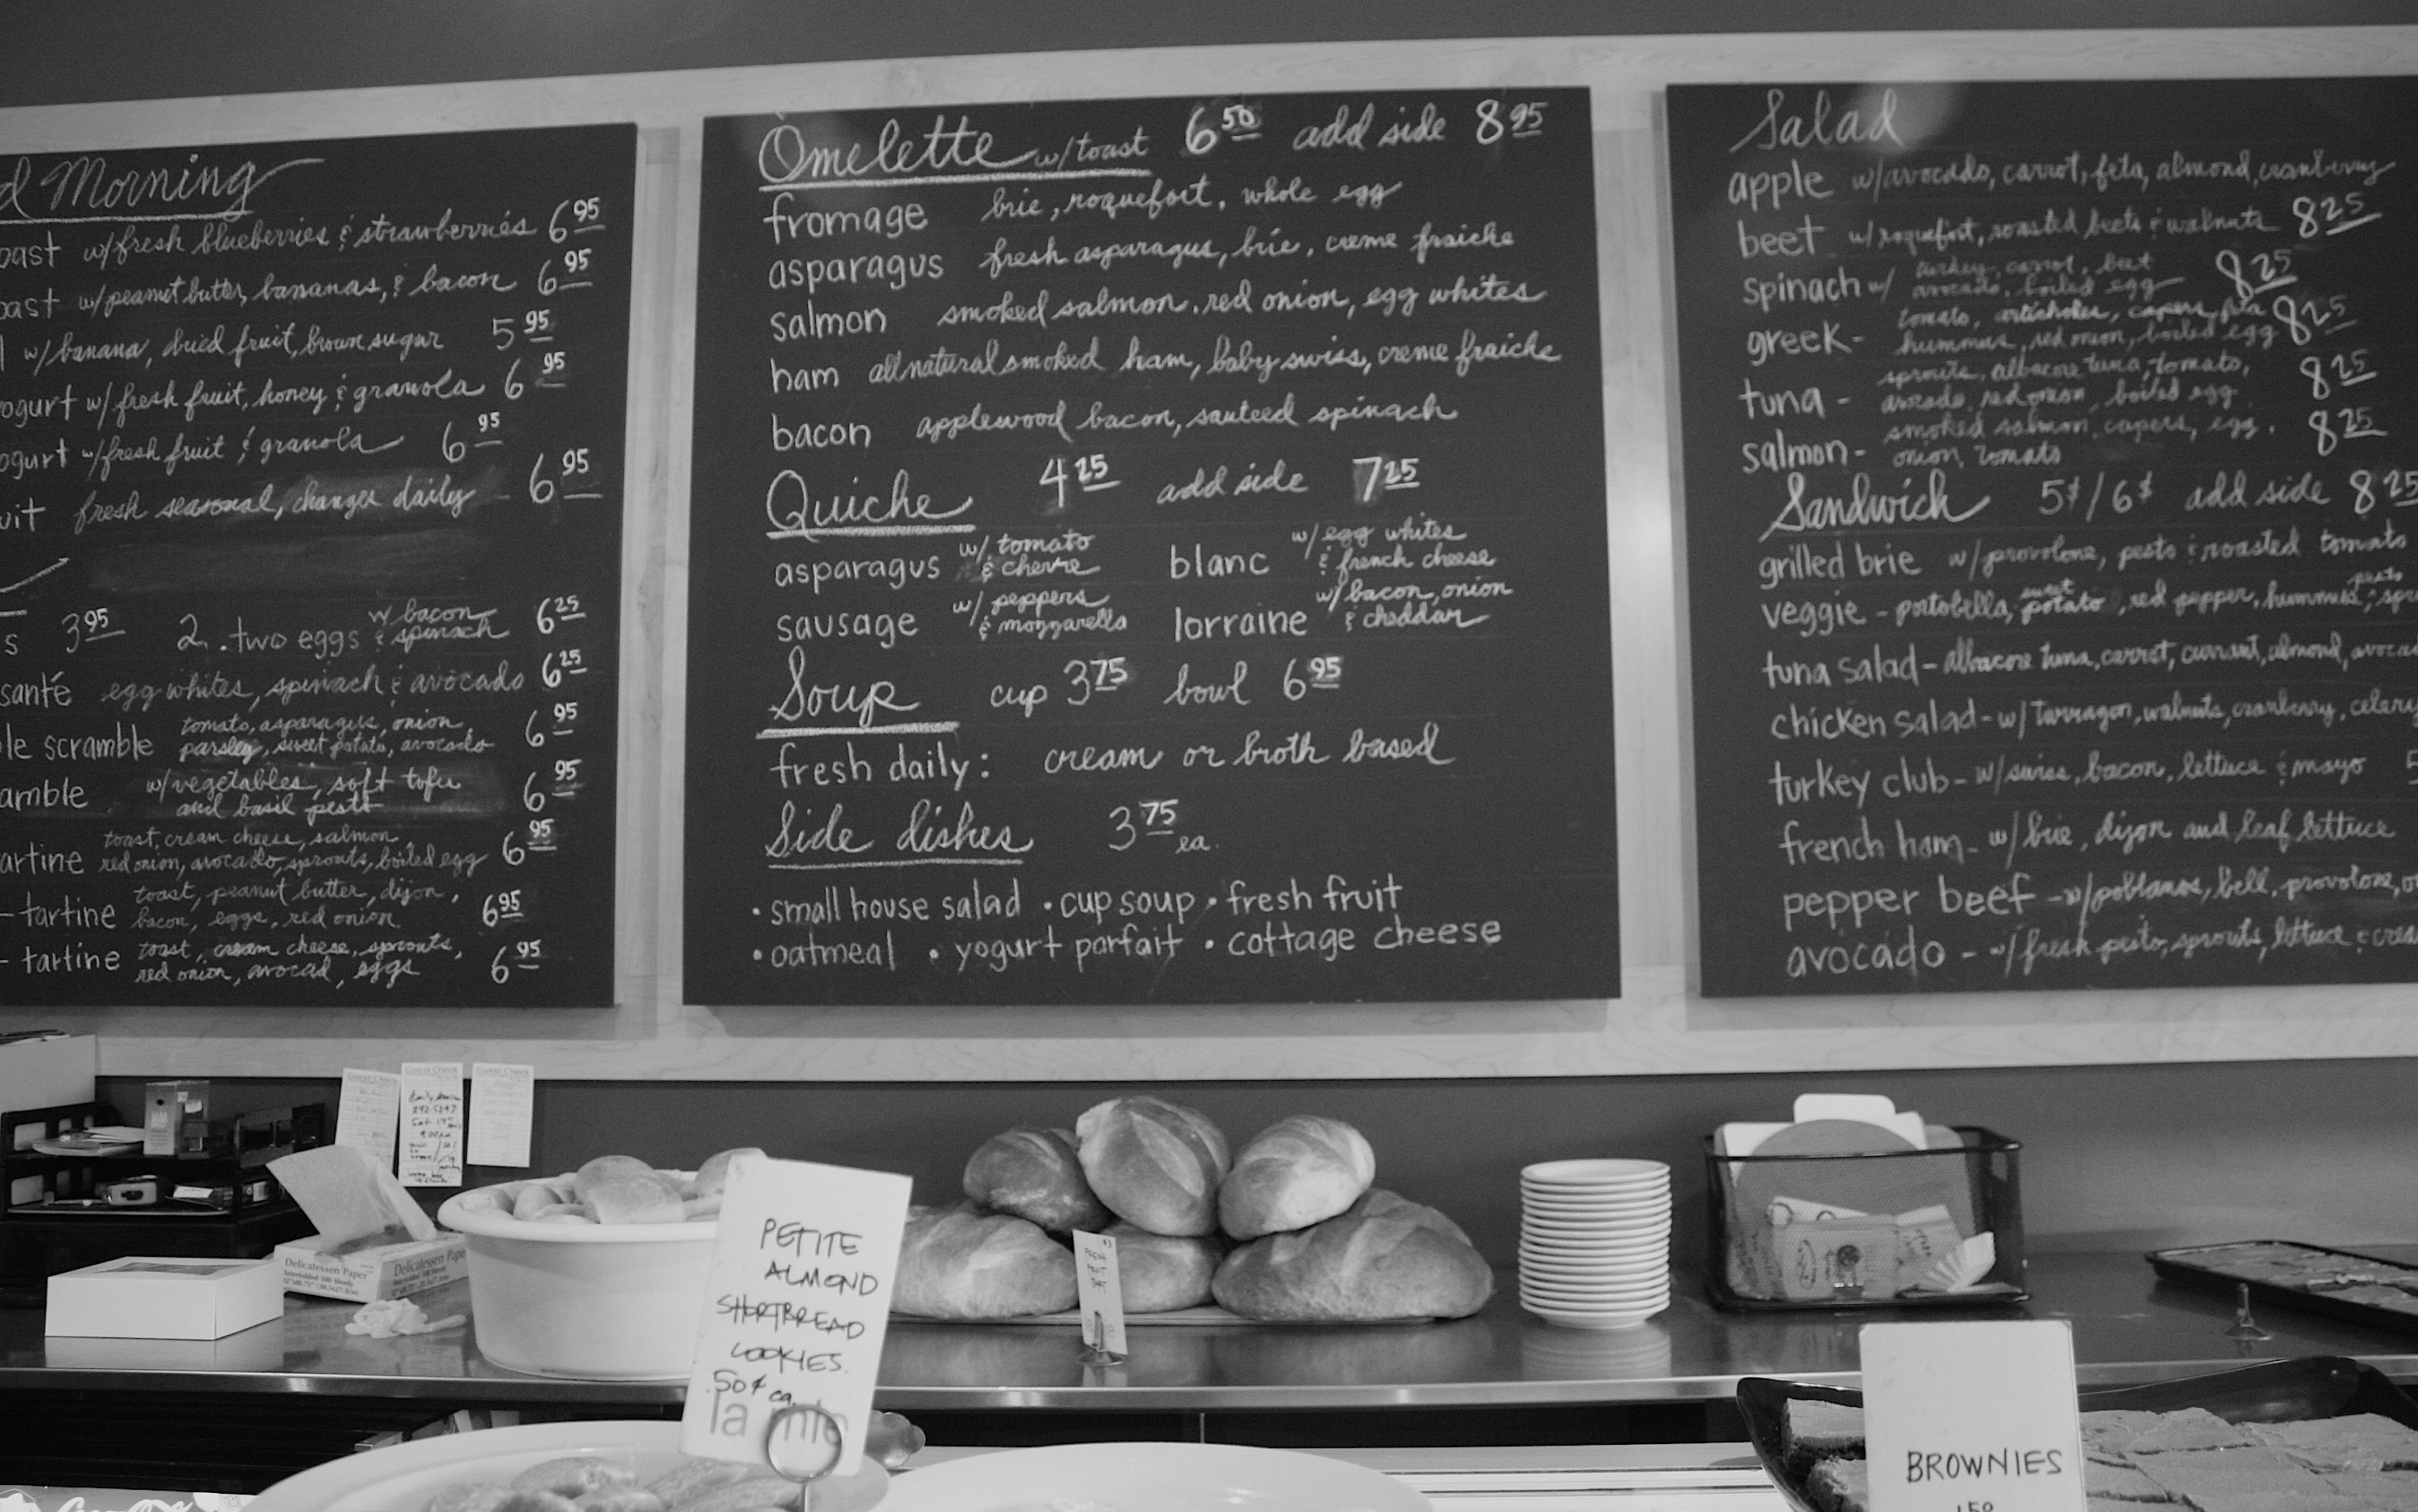 d Morning
oast w/fresh blueberries & strawberries 6 95
oast w/peanut butter, bananas, & bacon 6 95
l w/banana, dried fruit, brown sugar 5 95
ogurt w/fresh fruit, honey & granola 6 95
ogurt w/fresh fruit & granola 6 95
uit fresh seasonal, changes daily 6 95
s 3 95 2. two eggs w/ bacon & spinach 6 25
santé egg whites, spinach & avocado 6 25
le scramble tomato, asparagus, onion, parsley, sweet potato, avocado 6 95
amble w/vegetables, soft tofu and basil pesto 6 95
artine toast, cream cheese, salmon, red onion, avocado, sprouts, boiled egg 6 95
- tartine toast, peanut butter, dijon, bacon, eggs, red onion 6 95
- tartine toast, cream cheese, sprouts, red onion, avocad, eggs 6 95
Omelette w/toast 6 50 add side 8 95
fromage brie, roquefort, whole egg
asparagus fresh asparagus, brie, creme fraiche
salmon smoked salmon, red onion, egg whites
ham all natural smoked ham, baby swiss, creme fraiche
bacon applewood bacon, sauteed spinach
Quiche 4 25 add side 7 25
asparagus w/ tomato & chevre blanc w/ egg whites & french cheese
sausage w/ peppers & mozzarella lorraine w/ bacon, onion & cheddar
Soup cup 3 75 bowl 6 95
fresh daily: cream or broth based
Side dishes 3 75 ea.
• small house salad • cup soup • fresh fruit
• oatmeal • yogurt parfait • cottage cheese
Salad
apple w/avocado, carrot, feta, almond, cranberry
beet w/roquefort, roasted beets & walnuts 8 25
spinach w/ turkey, carrot, beet avocado, boiled egg 8 25
greek- tomato, artichokes, capers, feta hummus, red onion, boiled egg 8 25
tuna - sprouts, albacore tuna, tomato, avocado, red onion, boiled egg 8 25
salmon - smoked salmon, capers, egg, onion, tomato 8 25
Sandwich 5$/6$ add side 8 25
grilled brie w/provolone, pesto & roasted tomato
veggie - portobella, sweet potato, red pepper, hummus, pesto & spr
tuna salad - albacore tuna, carrot, currant, almond, avoca
chicken salad - w/ Tarragon, walnuts, cranberry, celery
turkey club - w/swiss, bacon, lettuce & mayo 5
french ham - w/ brie, dijon and leaf lettuce
pepper beef - w/poblanos, bell, provolone, o
avocado - w/fresh pesto, sprouts, lettuce & crea
Guest Check
Guest Check
Guest Check
Delicatessen Paper
Delicatessen Pape
PETITE
ALMOND
SHORTBREAD
COOKIES.
.50¢ ea.
la mie
BROWNIES